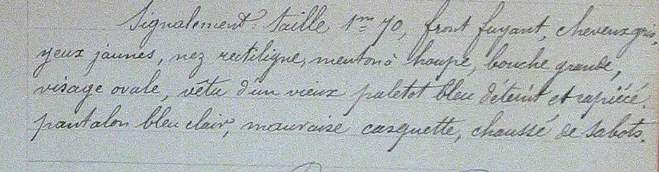 Signalement: taille 1m 70, front fuyant, cheveux gris,
yeux jaunes, nez rectiligne, menton à houpe, bouche grande,
visage ovale, vêtu d'un vieux paletot bleu déteint et rapiécé.
pantalon bleu clair, mauvaise casquette, chaussé de sabots.